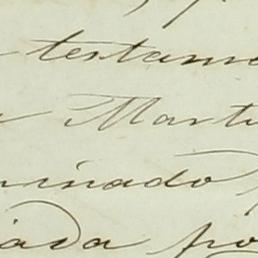 testame
Marti
inado
iada po